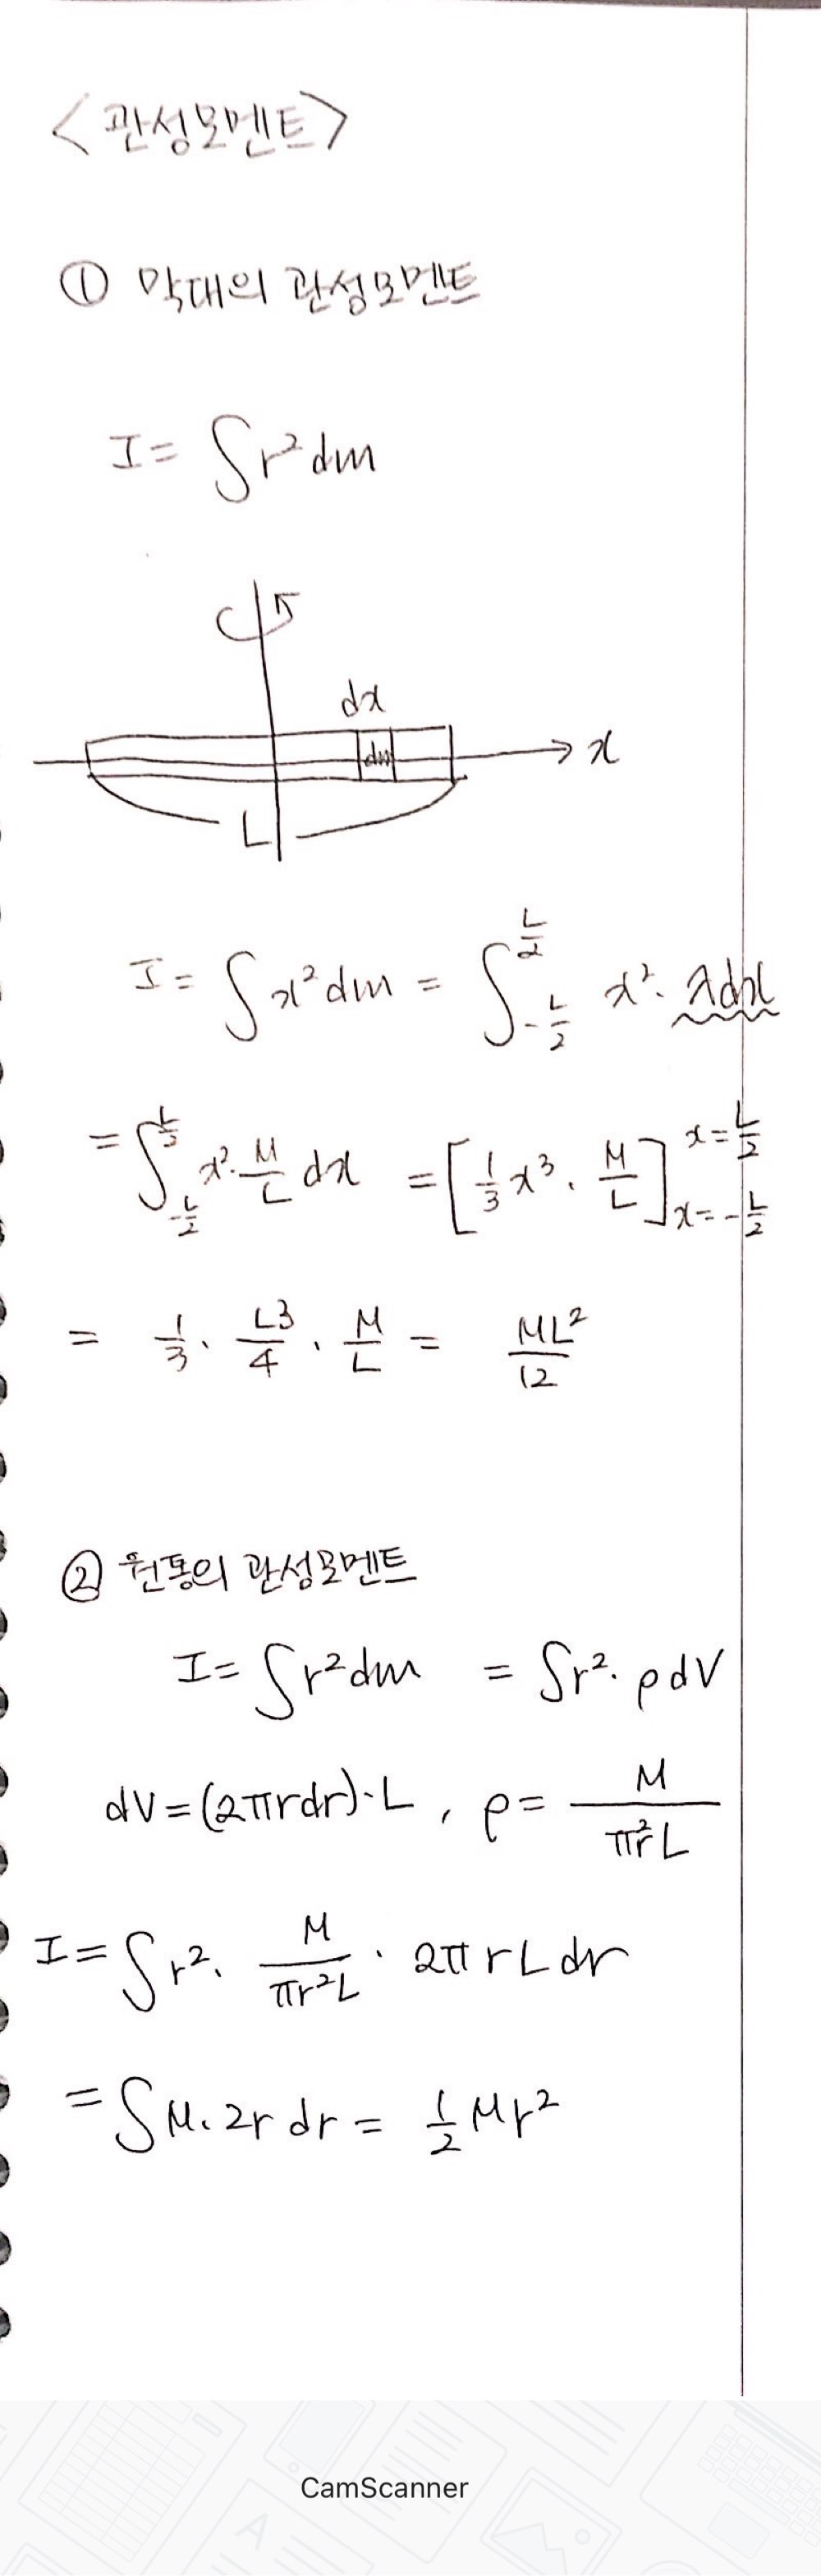 <관성모멘트>
① 막대의 관성모멘트
I = ∫r²dm
dx
dm
x
L
I = ∫x²dm = ∫_{-L/2}^{L/2} x²· λdx
= ∫_{-L/2}^{L/2} x²· M/L dx = [1/3 x³· M/L]_{x=-L/2}^{x=L/2}
= 1/3 · L³/4 · M/L = ML²/12
② 원통의 관성모멘트
I = ∫r²dm = ∫r²· ρdV
dV = (2πrdr)·L , ρ = M/πr²L
I = ∫r²· M/πr²L · 2πrLdr
= ∫M·2r dr = 1/2 Mr²
CamScanner